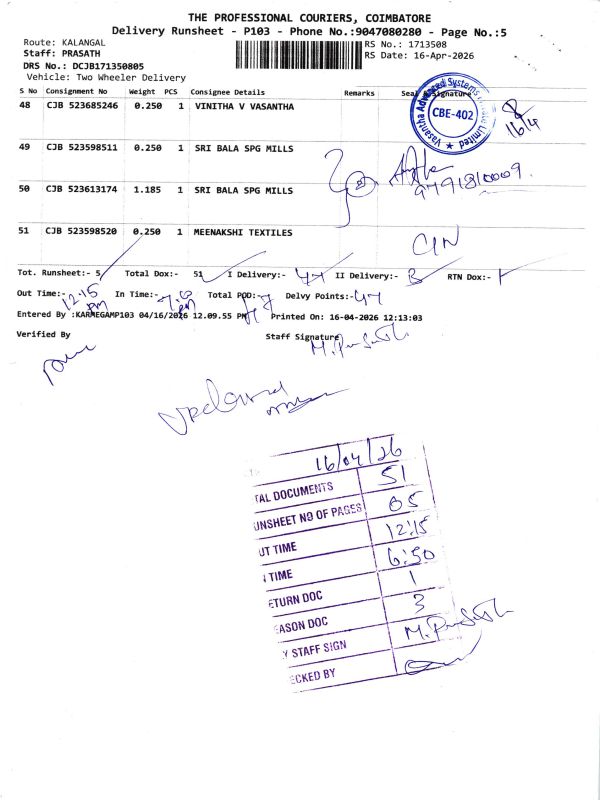 THE PROFESSIONAL COURIERS, COIMBATORE
Delivery Runsheet - P103 - Phone No.:9047080280 - Page No.:5
Route: KALANGAL
RS No.: 1713508
Staff: PRASATH
RS Date: 16-Apr-2026
DRS No.: DCJB171350805
Vehicle: Two Wheeler Delivery
S No Consignment No Weight PCS Consignee Details Remarks Seal & Signature
48 CJB 523685246 0.250 1 VINITHA V VASANTHA
Vasantha Advanced Systems Limited
CBE-402
16/4
49 CJB 523598511 0.250 1 SRI BALA SPG MILLS
9791810009.
50 CJB 523613174 1.185 1 SRI BALA SPG MILLS
51 CJB 523598520 0.250 1 MEENAKSHI TEXTILES
Tot. Runsheet:- 5 Total Dox:- 51 I Delivery:- 47 II Delivery:- 3 RTN Dox:- 1
Out Time:- 12.15 PM In Time:- PM Total POD:- 47 Delvy Points:- 47
Entered By :KARMEGAMP103 04/16/2026 12.09.55 PM Printed On: 16-04-2026 12:13:03
Verified By Staff Signature
M. Prasath
16/04/26
TAL DOCUMENTS 51
UNSHEET NO OF PAGES 05
UT TIME 12:15
TIME 6:50
ETURN DOC 1
EASON DOC 3
Y STAFF SIGN M. Prasath
ECKED BY